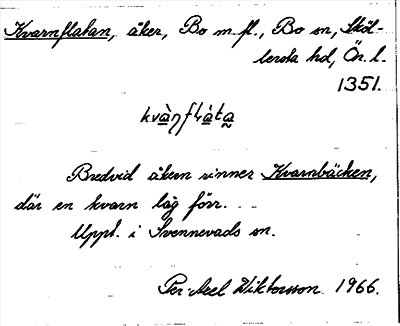 Kvarnflatan, åker, Bo m.fl., Bo sn, Sköl-
lersta hd, Ön. l.
1351.
kvà̱ṇfɫá̱ta̰
Bredvid åkern rinner Kvarnbäcken,
där en kvarn låg förr.
Uppt. i Svennevads sn.
Per-Axel Wiktorsson 1966.